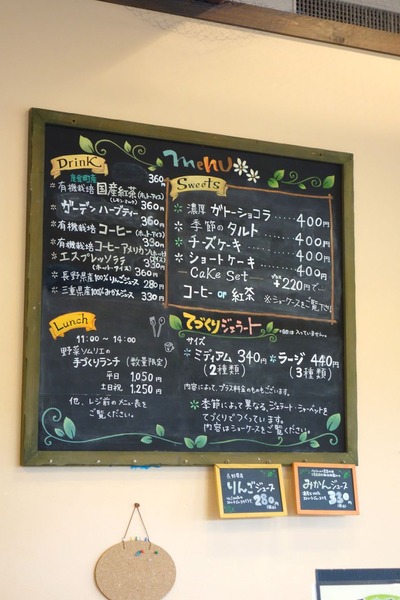 menu
Drink
有機栽培 国産紅茶 (ホット・アイス) 360
ガーデン ハーブティー 360円
有機栽培 コーヒー (ホット・アイス) 360
有機栽培 コーヒーアメリカン
エスプレッソラテ
(ホット・アイス) 360円
長野県産100%りんごジュース 280
三重県産100%みかんジュース 330
Sweets
濃厚 ガトーショコラ ····· 400円
季節のタルト ····· 400円
チーズケーキ ····· 400円
ショートケーキ ···· 400円
Cake Set ¥220円で…
コーヒー or 紅茶 ※ショーケースをご覧下さい
Lunch
11:00 ~ 14:00
野菜ソムリエの
手づくりランチ (数量限定)
平日 1,050円
土日祝 1,250円
他、レジ前のメニュー表を
ご覧ください。
てづくりジェラート
サイズ
ミディアム 340円
(2種類)
ラージ 440円
(3種類)
内容によって、プラス料金のものもございます。
季節によって異なる、ジェラート・シャーベットを
てづくりでつくっています。
内容はショーケースをご覧ください。
長野県産
りんごジュース
280円
みかんジュース
330円